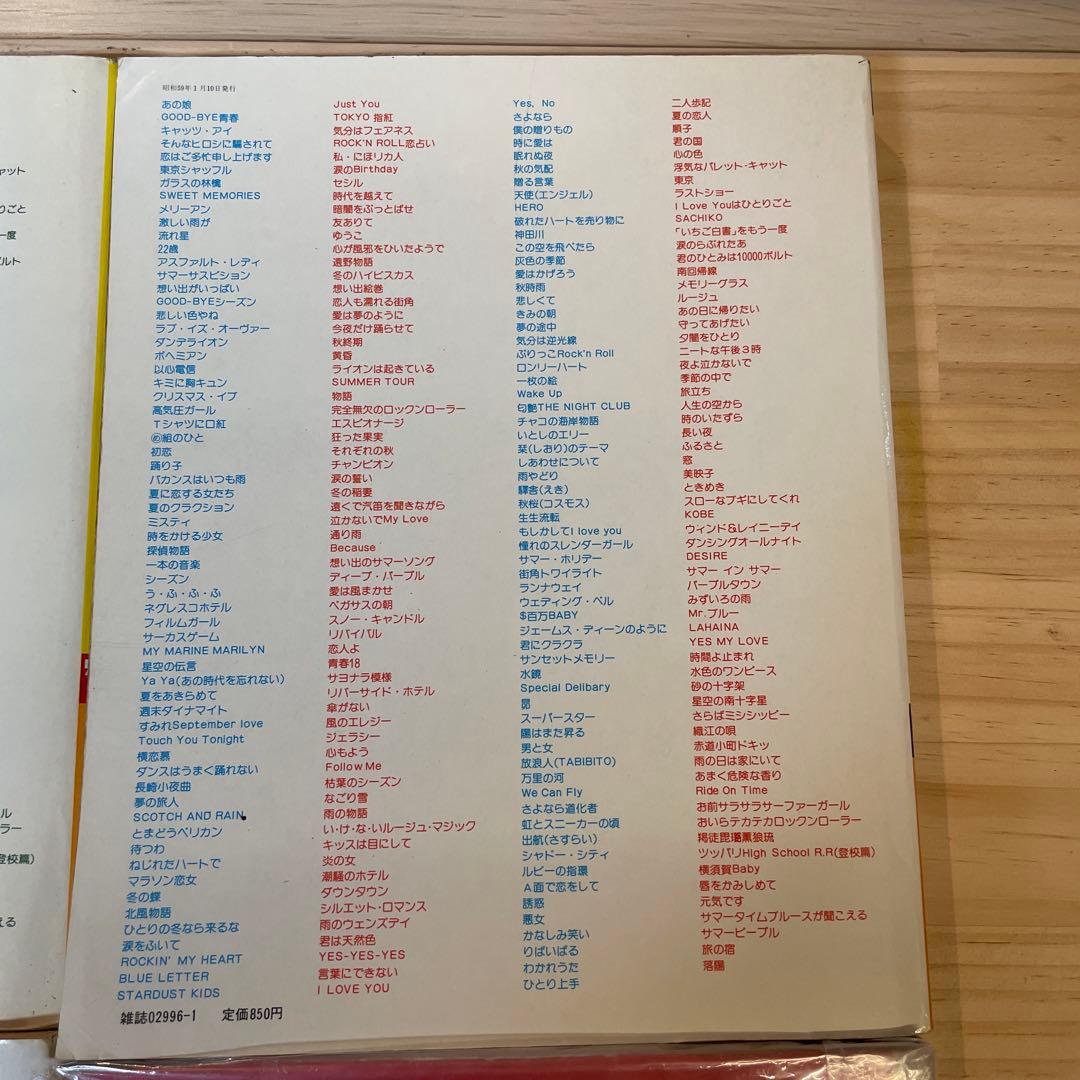 昭和59年1月10日発行
あの娘
GOOD-BYE青春
キャッツ・アイ
そんなヒロシに騙されて
恋はご多忙申し上げます
東京シャッフル
ガラスの林檎
SWEET MEMORIES
メリーアン
激しい雨が
流れ星
22歳
アスファルト・レディ
サマーサスピション
想い出がいっぱい
GOOD-BYEシーズン
悲しい色やね
ラブ・イズ・オーヴァー
ダンデライオン
ボヘミアン
以心電信
キミに胸キュン
クリスマス・イブ
高気圧ガール
Tシャツに口紅
㋱組のひと
初恋
踊り子
バカンスはいつも雨
夏に恋する女たち
夏のクラクション
ミスティ
時をかける少女
探偵物語
一本の音楽
シーズン
う・ふ・ふ・ふ
ネグレスコホテル
フィルムガール
サーカスゲーム
MY MARINE MARILYN
星空の伝言
Ya Ya(あの時代を忘れない)
夏をあきらめて
週末ダイナマイト
すみれSeptember love
Touch You Tonight
横恋慕
ダンスはうまく踊れない
長崎小夜曲
夢の旅人
SCOTCH AND RAIN
とまどうペリカン
待つわ
ねじれたハートで
マラソン恋女
冬の蝶
北風物語
ひとりの冬なら来るな
涙をふいて
ROCKIN' MY HEART
BLUE LETTER
STARDUST KIDS
Just You
TOKYO 指紅
気分はフェアネス
ROCK'N ROLL恋占い
私・にほリカ人
涙のBirthday
セシル
時代を越えて
暗闇をぶっとばせ
友ありて
ゆうこ
心が風邪をひいたようで
遠野物語
冬のハイビスカス
想い出絵巻
恋人も濡れる街角
愛は夢のように
今夜だけ踊らせて
秋終期
黄昏
ライオンは起きている
SUMMER TOUR
物語
完全無欠のロックンローラー
エスピオナージ
狂った果実
それぞれの秋
チャンピオン
涙の誓い
冬の稲妻
遠くで汽笛を聞きながら
泣かないでMy Love
通り雨
Because
想い出のサマーソング
ディープ・パープル
愛は風まかせ
ペガサスの朝
スノー・キャンドル
リバイバル
恋人よ
青春18
サヨナラ模様
リバーサイド・ホテル
傘がない
風のエレジー
ジェラシー
心もよう
Follow Me
枯葉のシーズン
なごり雪
雨の物語
い・け・な・いルージュ・マジック
キッスは目にして
炎の女
潮騒のホテル
ダウンタウン
シルエット・ロマンス
雨のウェンズデイ
君は天然色
YES-YES-YES
言葉にできない
I LOVE YOU
Yes, No
さよなら
僕の贈りもの
時に愛は
眠れぬ夜
秋の気配
贈る言葉
天使(エンジェル)
HERO
破れたハートを売り物に
神田川
この空を飛べたら
灰色の季節
愛はかげろう
秋時雨
悲しくて
きみの朝
夢の途中
気分は逆光線
ぶりっこRock'n Roll
ロンリーハート
一枚の絵
Wake Up
匂艶THE NIGHT CLUB
チャコの海岸物語
いとしのエリー
栞(しおり)のテーマ
しあわせについて
雨やどり
驛舎(えき)
秋桜(コスモス)
生生流転
もしかしてI love you
憧れのスレンダーガール
サマー・ホリデー
街角トワイライト
ランナウェイ
ウェディング・ベル
$百万BABY
ジェームス・ディーンのように
君にクラクラ
サンセットメモリー
水鏡
Special Delibary
昴
スーパースター
陽はまた昇る
男と女
放浪人(TABIBITO)
万里の河
We Can Fly
さよなら道化者
虹とスニーカーの頃
出航(さすらい)
シャドー・シティ
ルビーの指環
A面で恋をして
誘惑
悪女
かなしみ笑い
りばいばる
わかれうた
ひとり上手
二人歩記
夏の恋人
順子
君の国
心の色
浮気なパレット・キャット
東京
ラストショー
I Love Youはひとりごと
SACHIKO
「いちご白書」をもう一度
涙のらぶれたあ
君のひとみは10000ボルト
南回帰線
メモリーグラス
ルージュ
あの日に帰りたい
守ってあげたい
夕闇をひとり
ニートな午後3時
夜よ泣かないで
季節の中で
旅立ち
人生の空から
時のいたずら
長い夜
ふるさと
窓
美映子
ときめき
スローなブギにしてくれ
KOBE
ウィンド&レイニーデイ
ダンシングオールナイト
DESIRE
サマー イン サマー
パープルタウン
みずいろの雨
Mr.ブルー
LAHAINA
YES MY LOVE
時間よ止まれ
水色のワンピース
砂の十字架
星空の南十字星
さらばミシシッピー
織江の唄
赤道小町ドキッ
雨の日は家にいて
あまく危険な香り
Ride On Time
お前サラサラサーファーガール
おいらテカテカロックンローラー
羯徒毘璐薫狼琉
ツッパリHigh School R.R(登校篇)
横須賀Baby
唇をかみしめて
元気です
サマータイムブルースが聞こえる
サマーピープル
旅の宿
落陽
雑誌02996-1 定価850円